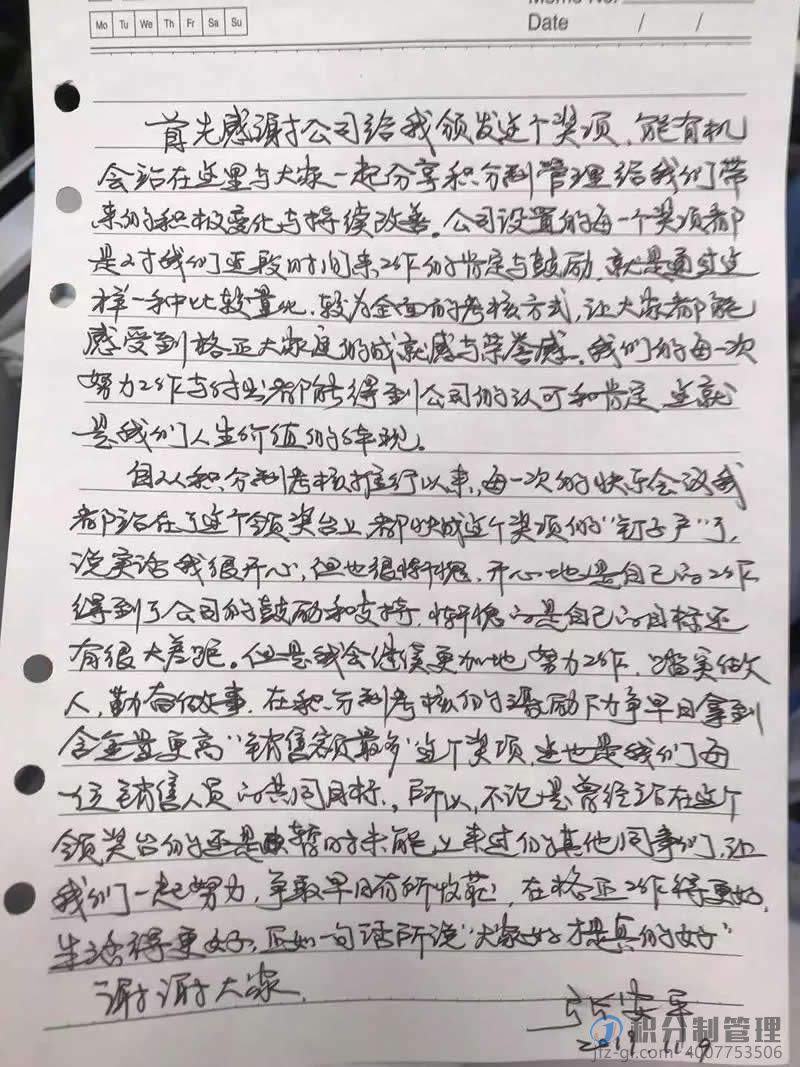 Memo No.
Mo Tu We Th Fr Sa Su
Date / /
首先感谢公司给我颁发这个奖项，能有机
会站在这里与大家一起分享积分制管理给我们带
来的积极变化与持续改善。公司设置的每一个奖项都
是对我们这段时间来工作的肯定与鼓励，就是通过这
样一种比较量化，较为全面的考核方式，让大家都能
感受到格正大家庭的成就感与荣誉感。我们的每一次
努力工作与付出都能得到公司的认可和肯定，这就
是我们人生价值的体现。
自从积分制考核推行以来，每一次的快乐会议我
都站在了这个领奖台上，都快成这个奖项的“钉子户”了，
说实话我很开心，但也很惭愧，开心地是自己的工作
得到了公司的鼓励和支持，惭愧的是自己的目标还
有很大差距。但是我会继续更加地努力工作，踏实做
人，勤奋做事，在积分制考核的激励下力争早日拿到
含金量更高“销售额最多”这个奖项，这也是我们每
一位销售人员的共同目标，所以，不论是曾经站在这个
领奖台的还是暂时未能上来过的其他同事们，让
我们一起努力，争取早日有所收获，在格正工作得更好，
生活得更好，正如一句话所说“大家好才是真的好”
谢谢大家，
2019 11.9
积分制管理
jfz-gl.com 4007753506